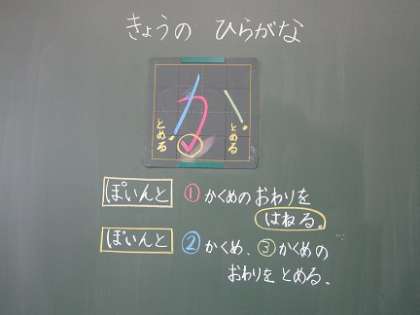 きょうの ひらがな
か
とめる
とめる
ぽいんと ①かくめのおわりを
はねる。
ぽいんと ②かくめ、③かくめの
おわりを とめる。